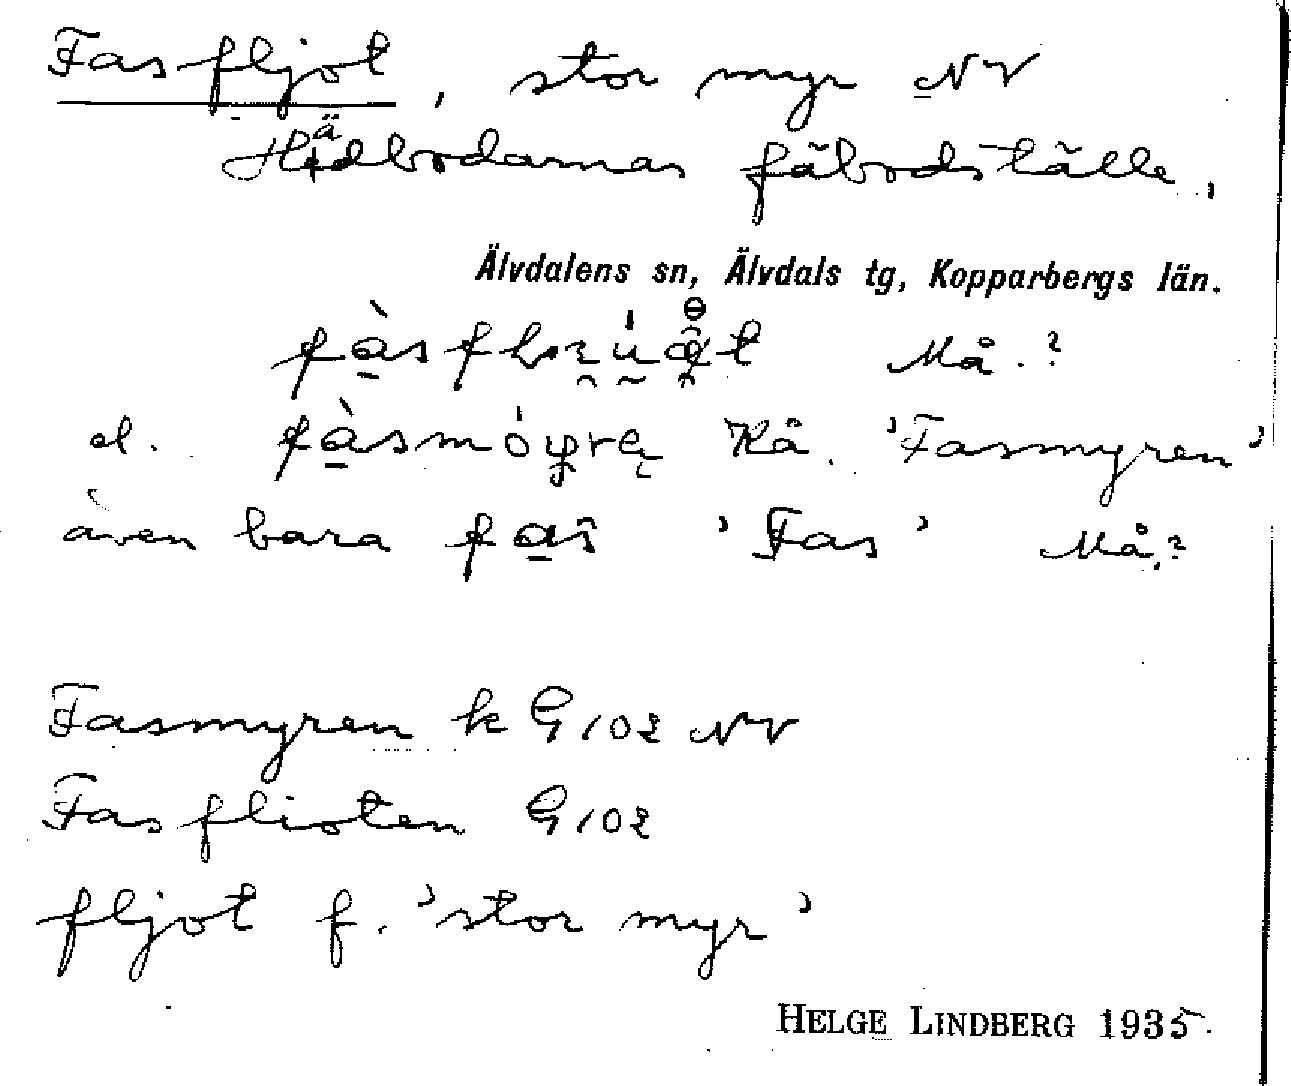 Fasfljot, stor myr NV
Hädbodarnas fäbodställe,
Älvdalens sn, Älvdals tg, Kopparbergs län.
Må.?
el. Kå. 'Fasmyren'
även bara fas 'Fas' Må.?
Fasmyren k G102 NV
Fasflioten G102
fljot f. 'stor myr'
HELGE LINDBERG 1935.